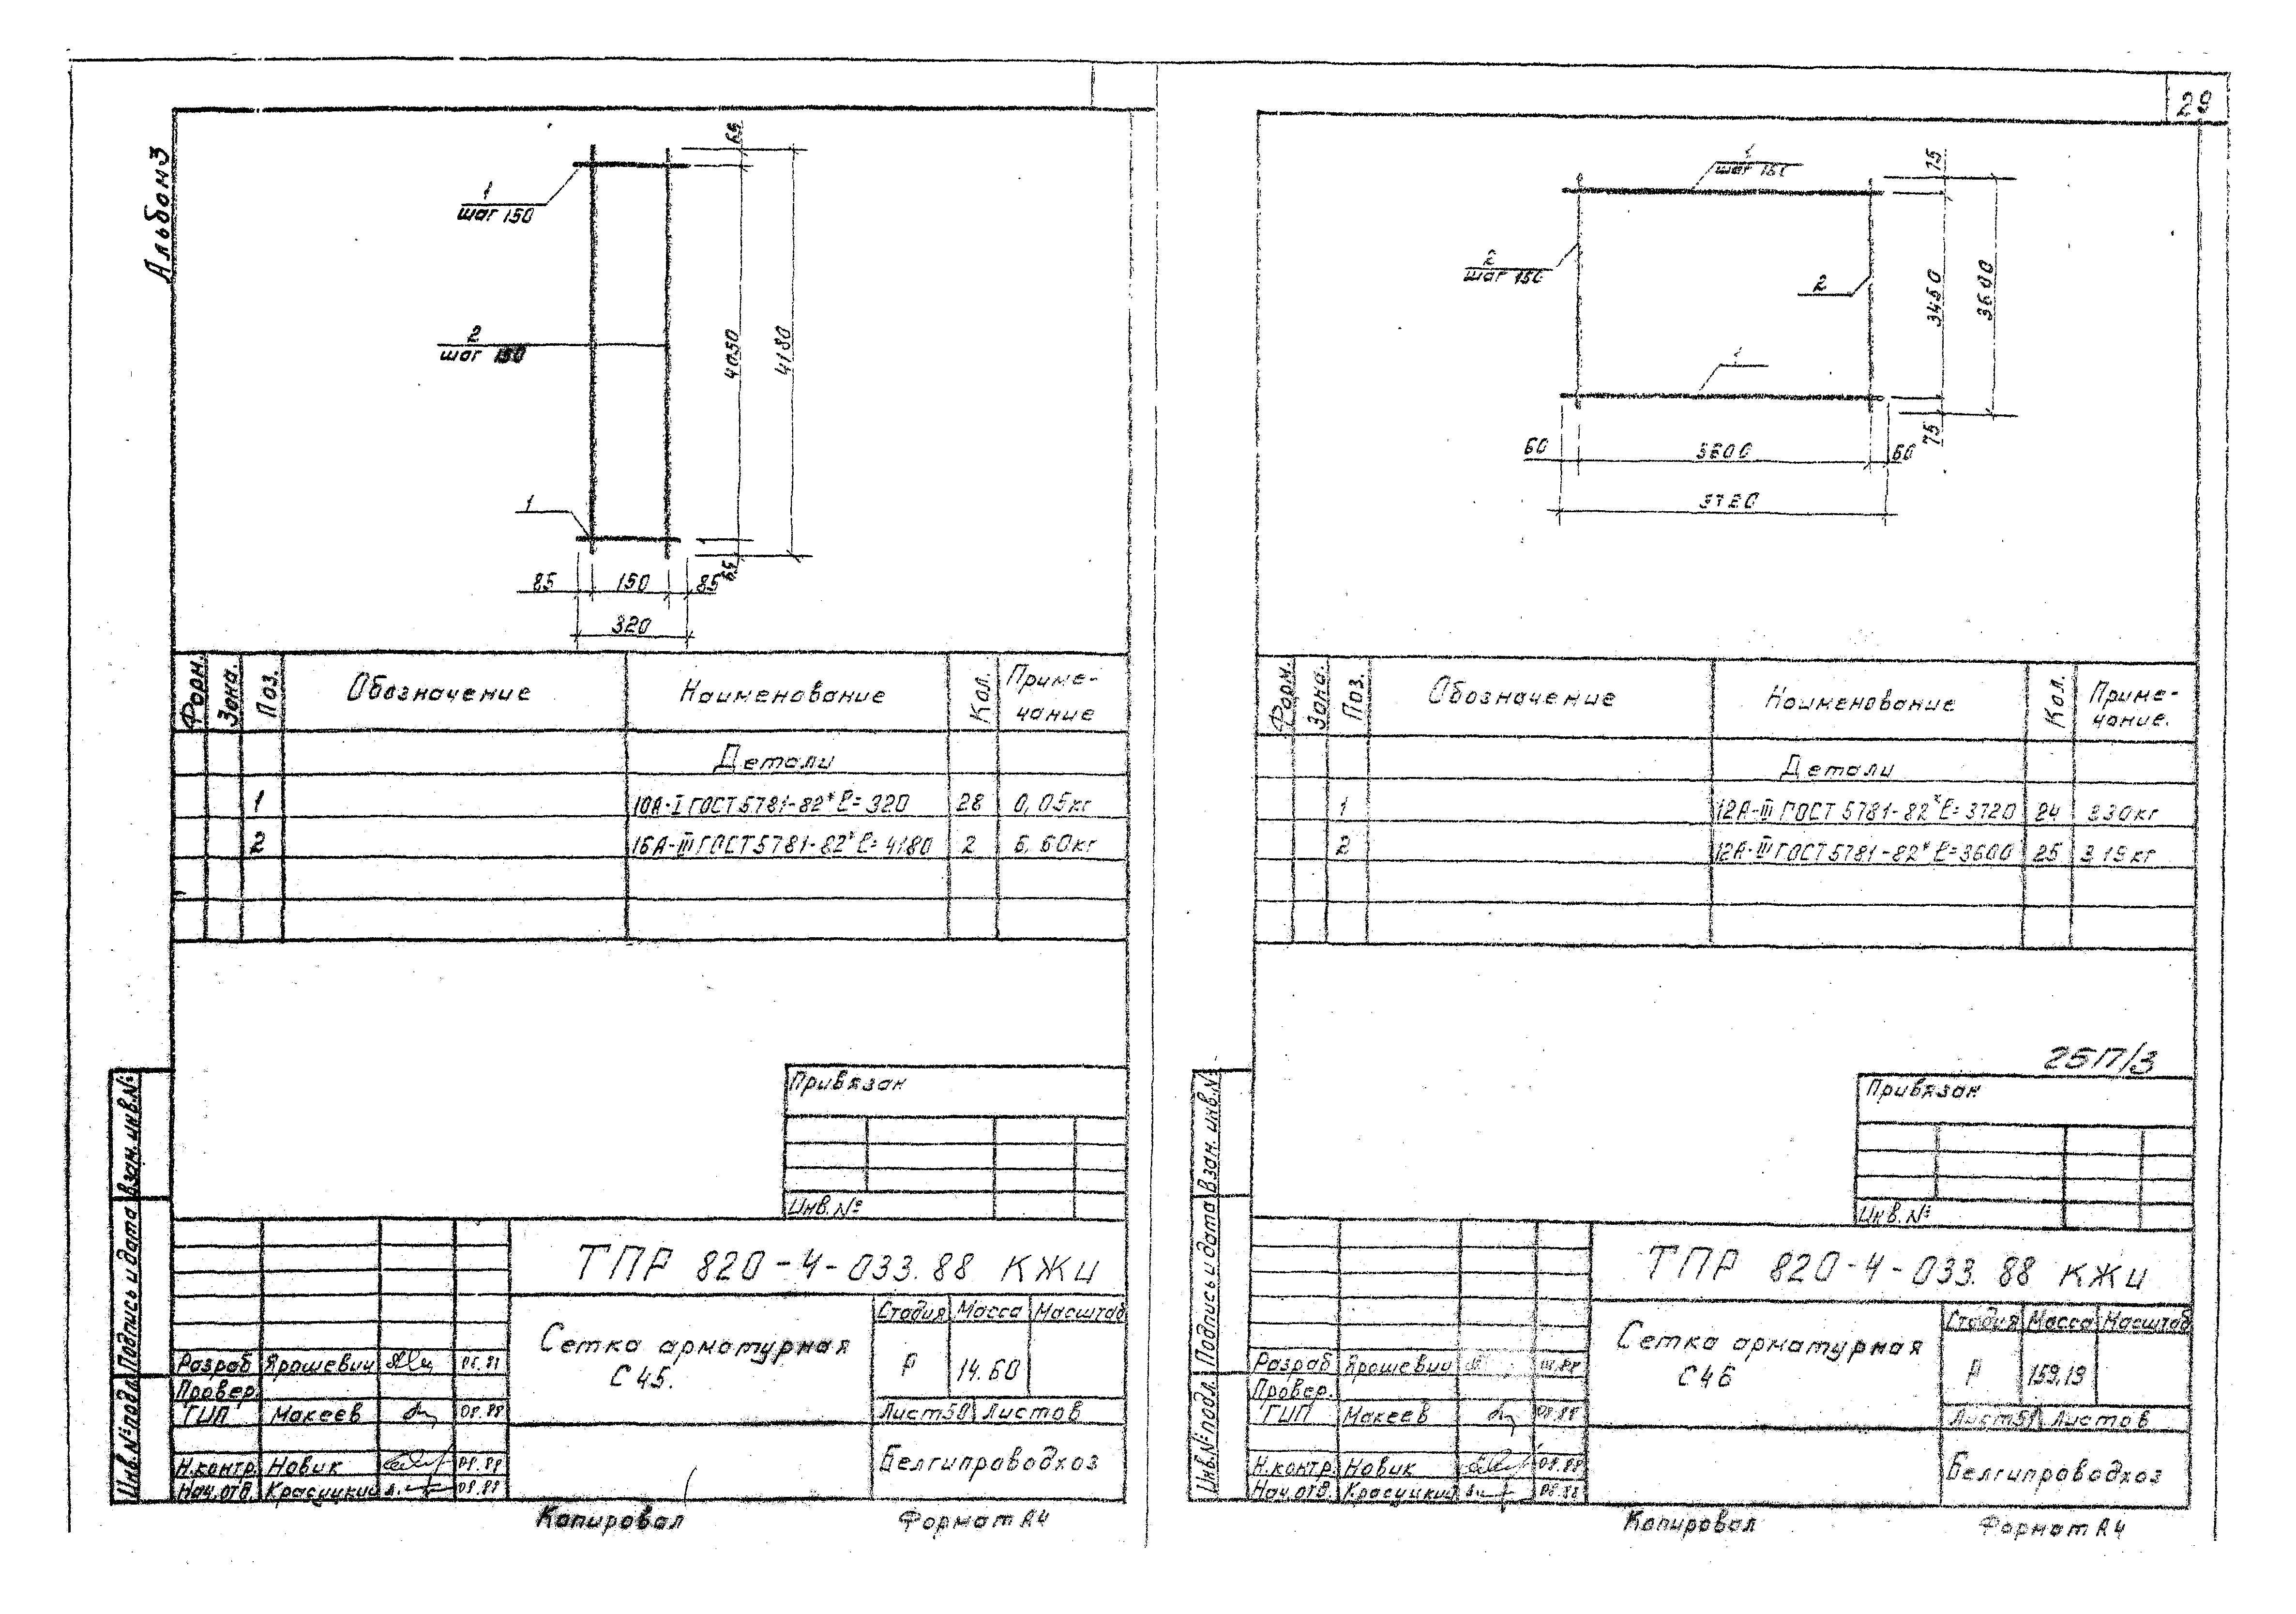 29
Альбом 3
65
1
шаг 150
2
шаг 150
4050
4180
1
65
85 150 85
320
Форм. Зона. Поз. Обозначение Наименование Кол. Приме-
чание
Детали
1 10А-I ГОСТ 5781-82* ℓ=320 28 0,05кг
2 16А-III ГОСТ 5781-82* ℓ=4180 2 6,60кг
Привязан
Инв.№
ТПР 820-4-033.88 КЖИ
Сетка арматурная
С45.
Стадия Масса Масштаб
Р 14.60
Лист 50 Листов
Белгипроводхоз
Разраб Ярошевич
Провер.
ГИП Макеев 08.88
Н.контр. Новик 08.88
Нач.отд. Красуцкий 08.88
Инв.№подл. Подпись и дата Взам. инв.№
Копировал
Формат А4
1
шаг 150
75
2
шаг 150
2
3450
3600
1
75
60 3600 60
3720
Форм. Зона. Поз. Обозначение Наименование Кол. Приме-
чание.
Детали
1 12А-III ГОСТ 5781-82* ℓ=3720 24 3.30кг
2 12А-III ГОСТ 5781-82* ℓ=3600 25 3.19кг
25П/3
Привязан
Инв.№
ТПР 820-4-033.88 КЖИ
Сетка арматурная
С46
Стадия Масса Масштаб
Р 159,19
Лист 51 Листов
Белгипроводхоз
Разраб Ярошевич
Провер.
ГИП Макеев 08.88
Н.контр. Новик 08.88
Нач.отд. Красуцкий 08.88
Инв.№подл. Подпись и дата Взам. инв.№
Копировал
Формат А4